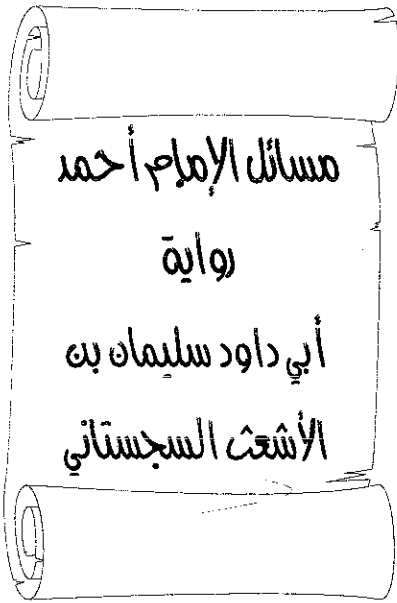 مسائل الإمام أحمد
رواية
أبي داود سليمان بن
الأشعث السجستاني